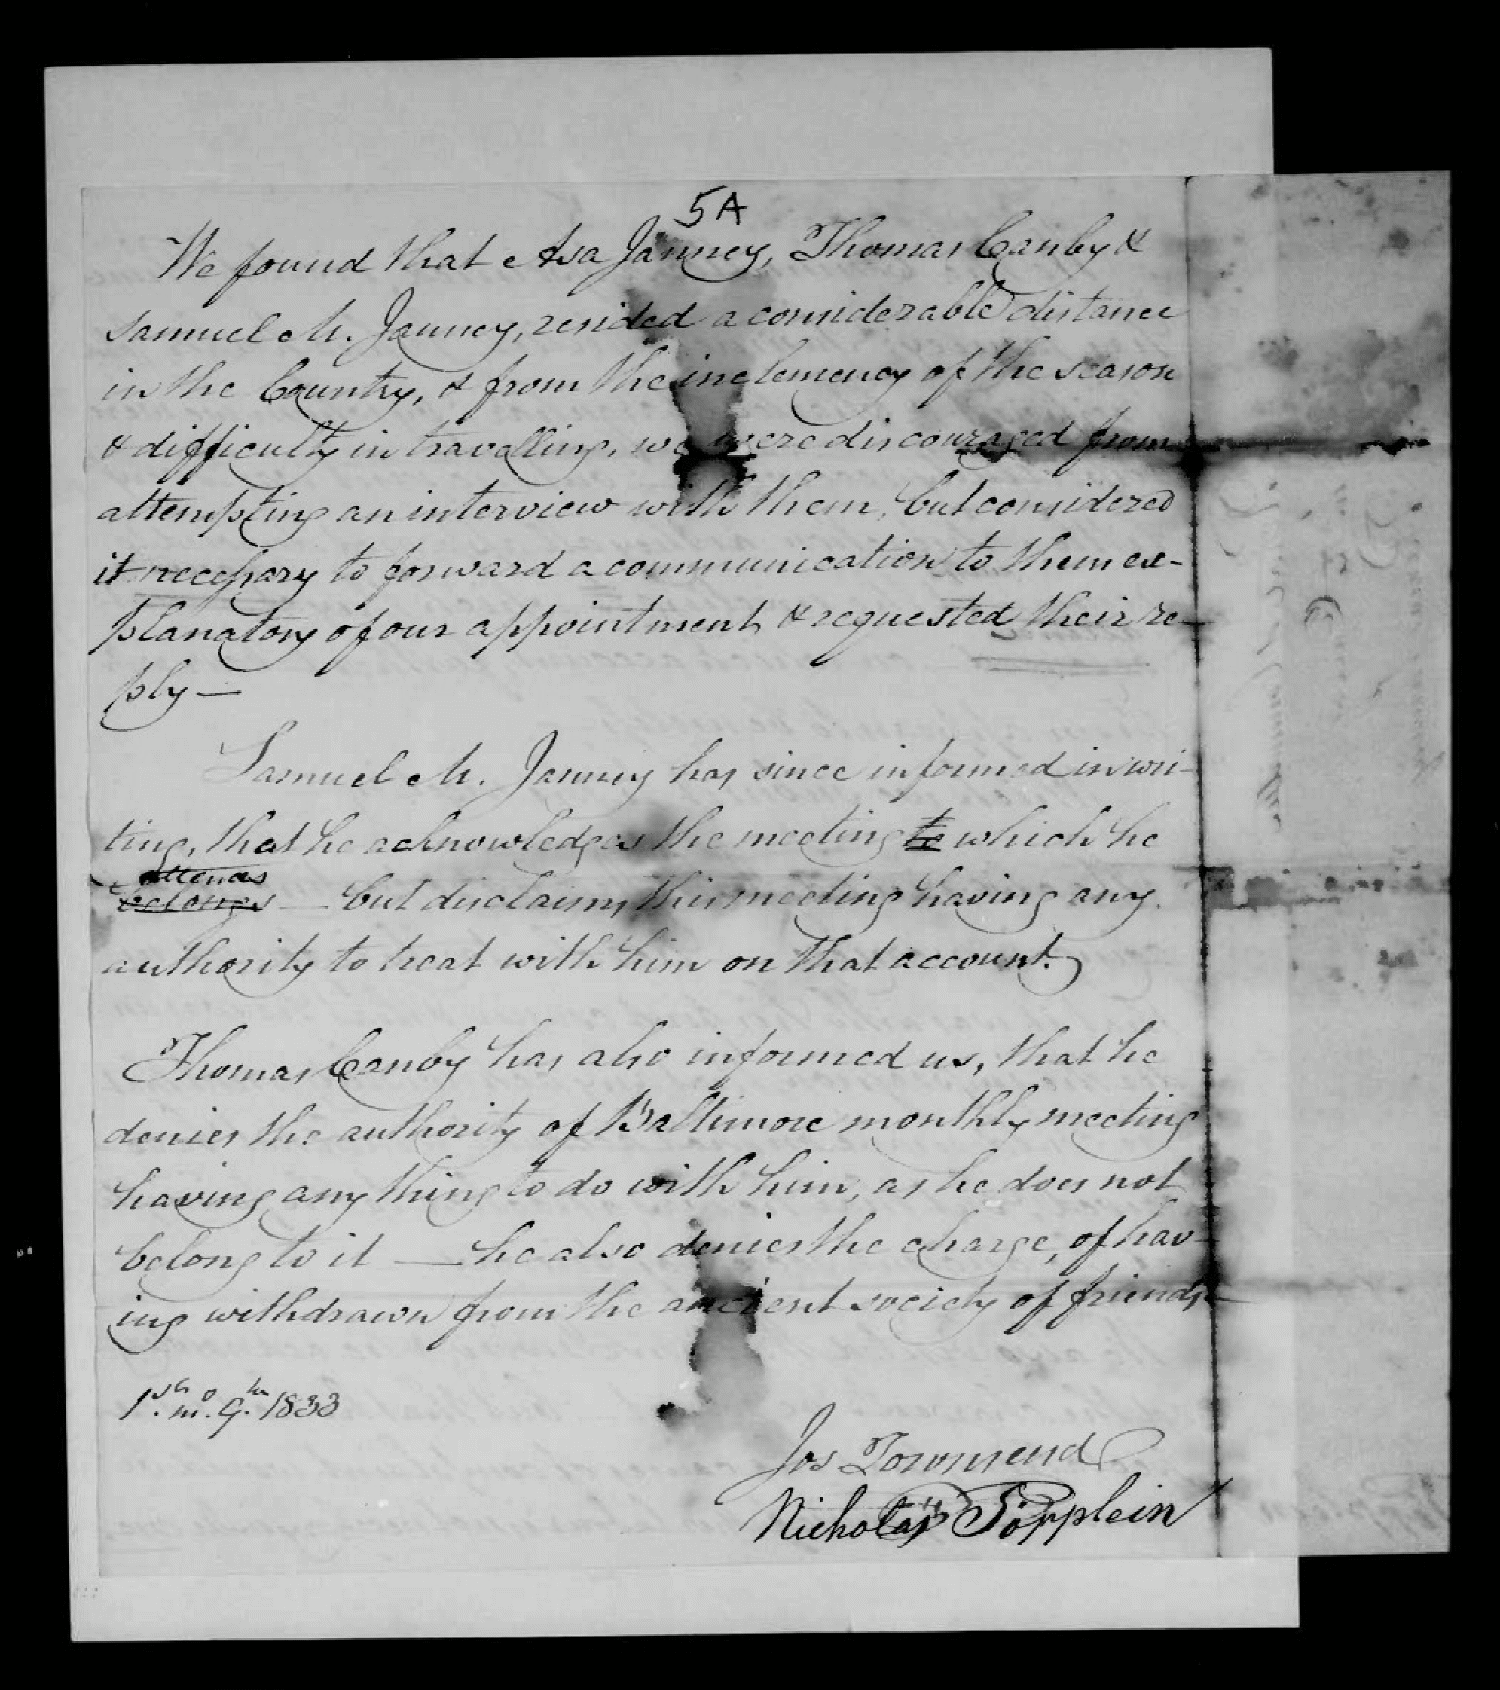 5A
We found that Asa Janney, Thomas Canby &
Samuel M. Janney, resided a considerable distance
in the Country, & from the inclemency of the season
& difficulty in travelling, we were discouraged from
attempting an interview with them, but considered
it necessary to forward a communication to them ex-
planatory of our appointment & requested their re-
ply —
Samuel M. Janney has since informed in wri-
ting, that he acknowledges the meeting to which he
attends
belongs — but disclaims this meeting having any
authority to treat with him on that account.
Thomas Canby has also informed us, that he
denies the authority of Baltimore monthly meeting
having any thing to do with him, as he does not
belong to it — he also denies the charge, of hav-
ing withdrawn from the ancient society of friends —
1st. mo. 9th. 1833
Jos Townsend
Nicholas Popplein